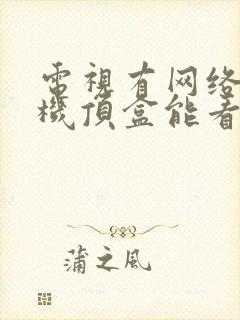 電視有网络
機頂盒能看
蒲之风